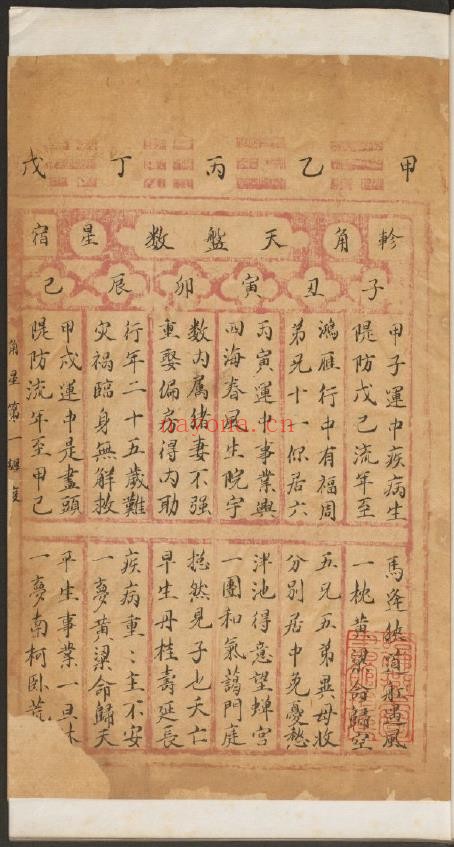 甲 乙 丙 丁 戊
軫 角 天 盤 數 星 宿
子 丑 寅 卯 辰 巳
甲子運中疾病生
隄防戊己流年至
鴻雁行中有福周
弟兄十一你居六
丙寅運中事業興
四海春風生院宇
數內屬猪妻不强
重娶偏房得內助
行年二十五歲難
灾禍臨身無解救
甲戌運中是盡頭
隄防流年至甲己
馬逢 遇風
一枕黄粱命歸空
五兄五弟異母收
分別居中免憂愁
泮池得意望蟬宮
一團和氣藹門庭
摠然見子也夭亡
早生丹桂壽延長
疾病重〻主不安
一夢黄粱命歸天
平生事業一旦休
一夢南柯卧荒
角星第一
nayona.cn